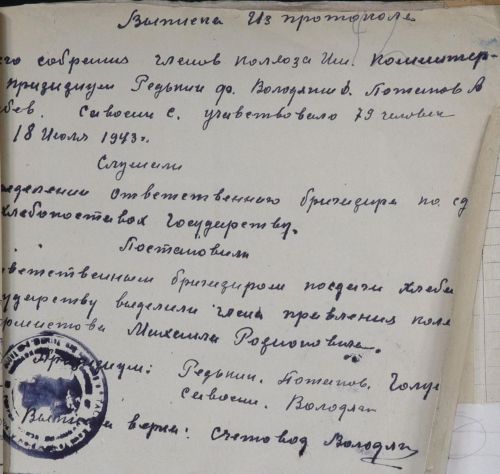 Выписка Из протокола
его собрания членов колхоза Им. Коминтер-
призидиум Редькин фо. Володкин д. Потапов А
бев. Сивосин С. учавствовало 79 человек
18 Июля 1943 г.
Слушали
ределении ответственного бригидира по сд
хлебопоставок Государству.
Постановили
тветственным бригидиром посдачи хлеба
сударству выделили члена правления колх
Михаила Родионовича.
Призидиум: Редькин. Потапов. Голуб
Сивосин. Володкин
Выписка верна: Счетовод Володкин